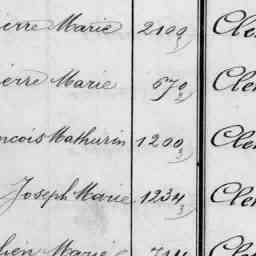 ierre Marie 2109 3 Cle
ierre Marie 670 3 Cle
ncois Mathurin 1200 3 Cle
Joseph Marie 1234 3 Cle
lien Marie